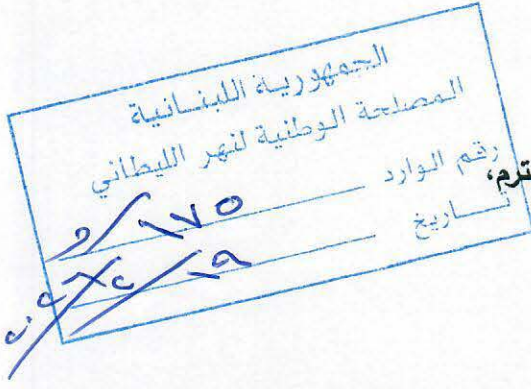 الجمهورية اللبنانية
المصلحة الوطنية لنهر الليطاني
رقم الوارد ١٧٥/
ترم،
تاريخ ١٩/٢/